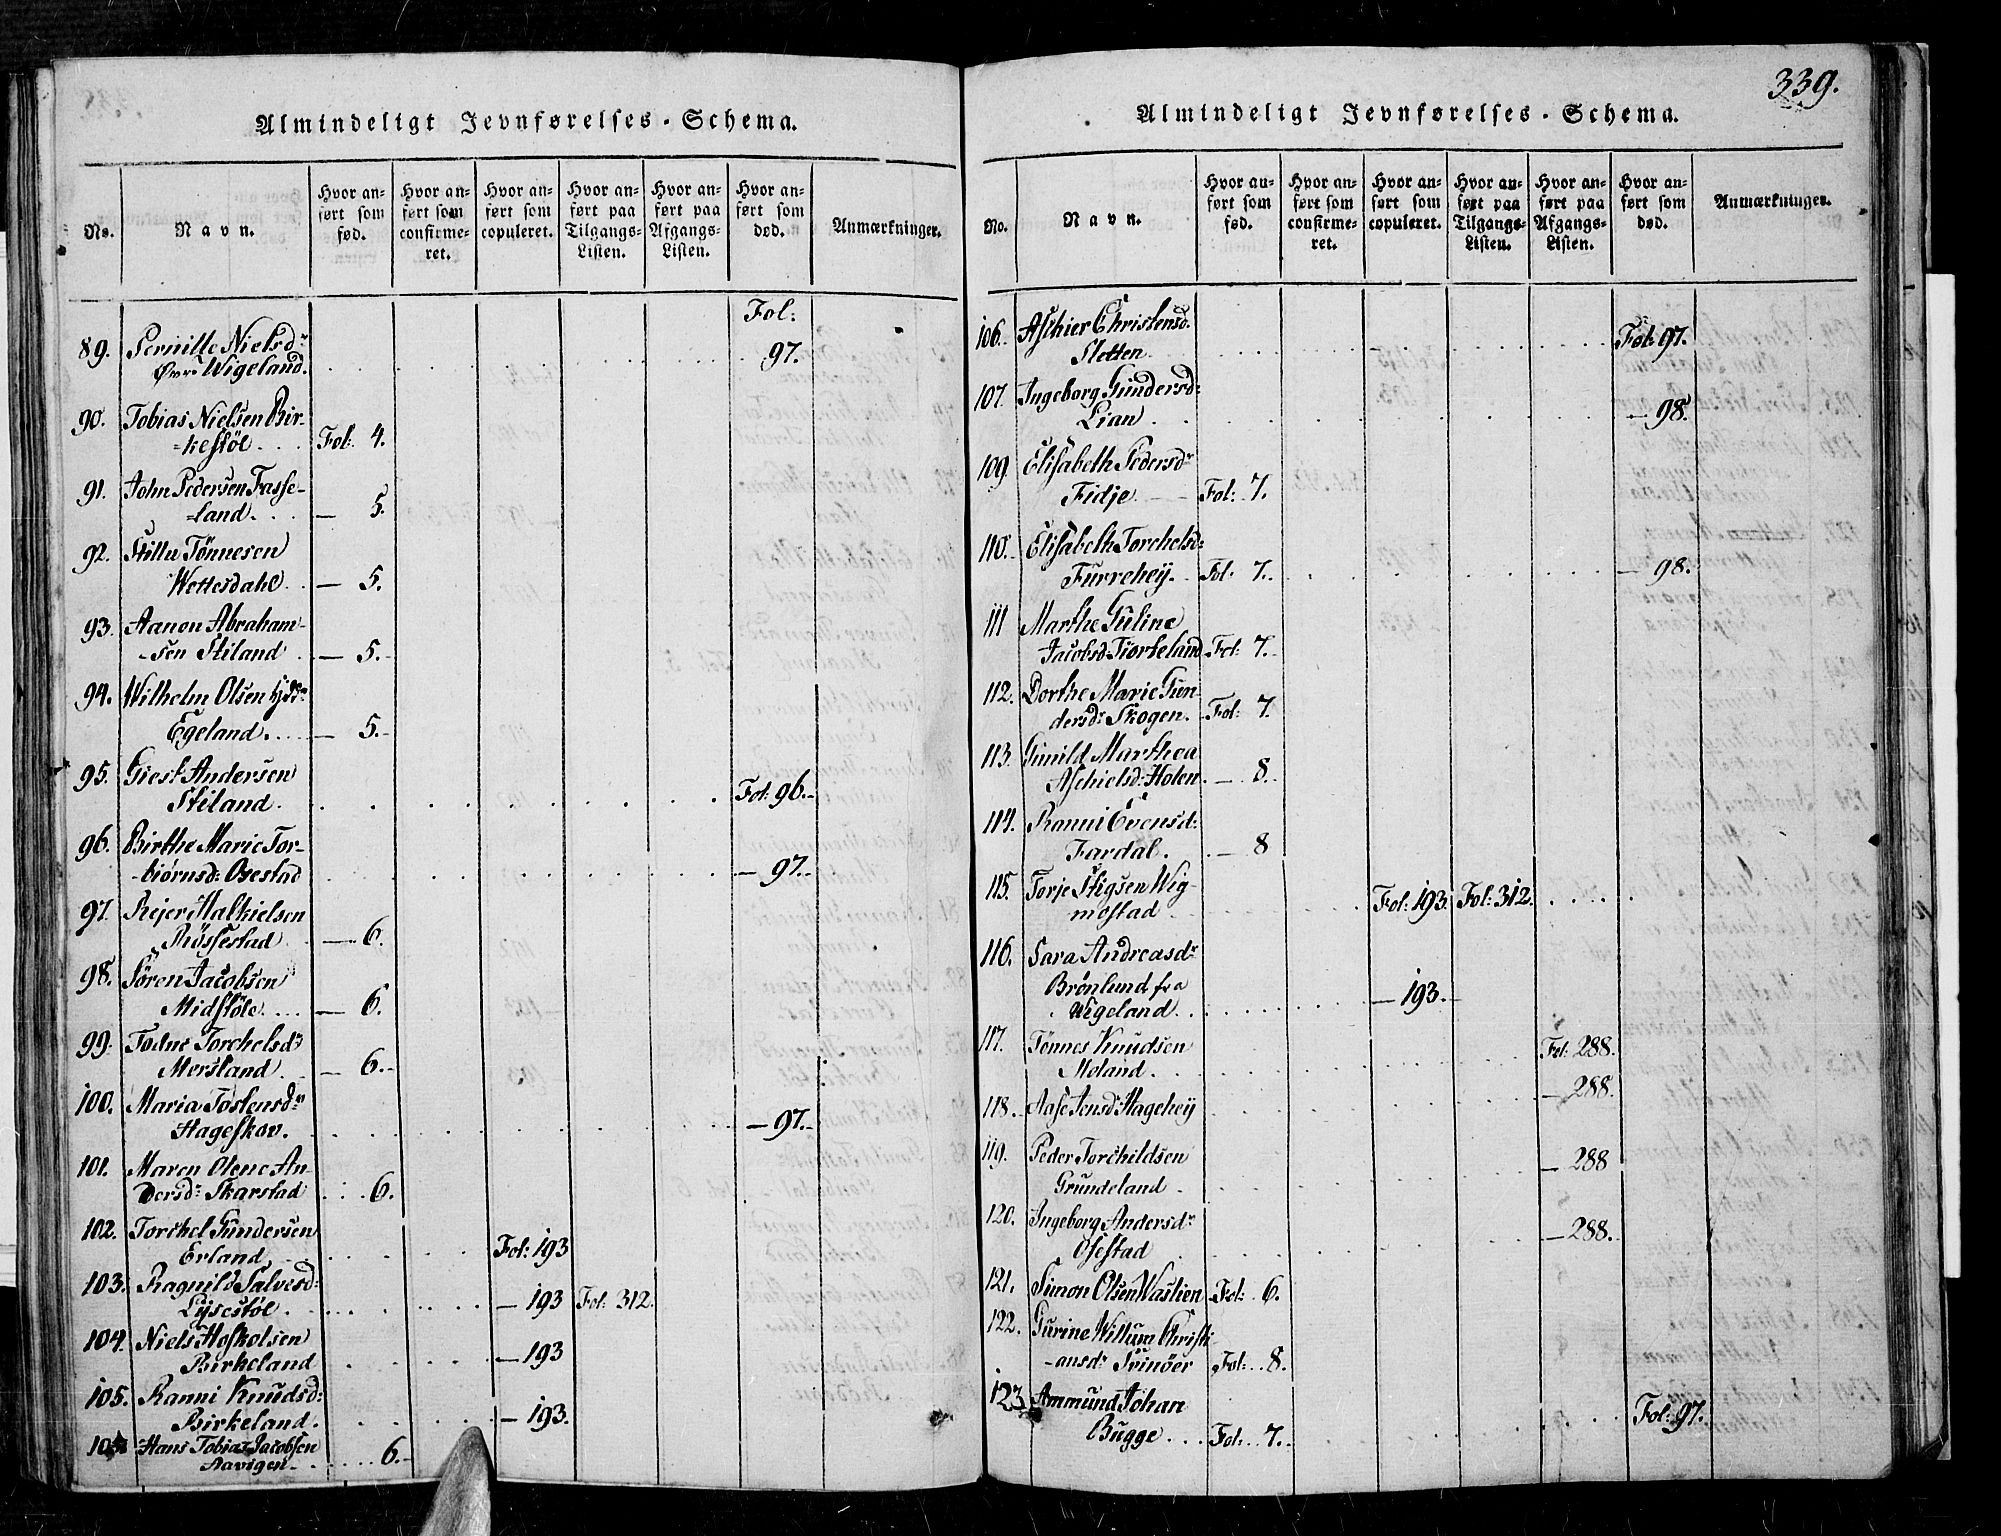 339.
Almindeligt Jevnførelses-Schema.
No.
Navn.
Hvor anført som fød.
Hvor anført som confirmeret.
Hvor anført som copuleret.
Hvor anført paa Tilgangs-Listen.
Hvor anført paa Afgangs-Listen.
Hvor anført som død.
Anmærkninger.
Fol:
89. Pernille Nielsdr
Øvre Wigeland. 97.
90. Tobias Nielsen Bir-
-kestøl Fol: 4.
91. John Pedersen Fasse-
-land. — 5.
92. Stillu Tønnesen
Wettesdahl — 5.
93. Aanon Abraham-
-sen Stiland — 5.
94. Wilhelm Olsen
Egeland. — 5.
95. Giest Andersen
Stiland. Fol: 96.
96. Birthe Marie Tor-
-biørnsd: Osestad — 97.
97. Rejer Malkielsen
Røssestad — 6.
98. Søren Jacobsen
Midstøle — 6.
99. Todne Torchelsdr
Mersland — 6.
100. Maria Tostensdr
Hageskov. — 97.
101. Maren Olene An-
dersdr Skarstad 6.
102. Torchel Gundersen
Erland Fol: 193
103. Ragnild Salvesd:
Lysestøl — 193 Fol: 312.
104. Niels Hoskolsen
Birkeland — 193
105. Ranni Knudsd:
Birkeland. — 193.
Hans Tobias Jacobsen
Aavigen 6.
Almindeligt Jevnførelses-Schema.
No.
Navn.
Hvor anført som fød.
Hvor anført som confirmeret.
Hvor anført som copuleret.
Hvor anført paa Tilgangs-Listen.
Hvor anført paa Afgangs-Listen.
Hvor anført som død.
Anmærkninger.
106. Aschier Christensd.
Sletten Fol: 97.
107. Ingeborg Gundersd:
Lian — 98.
109. Elisabeth Pedersdr
Fidje. Fol: 7.
110. Elisabeth Torchelsd:
Furrehey. Fol: 7. — 98.
111 Marthe Guline
Jacobsd: Tiorkeland Fol: 7.
112. Dorthe Marie Gun-
dersdr Skogen. Fol: 7.
113. Gunild Marthea
Aschielsd: Holen — 8.
114. Ranni Evensd:
Fardal. — 8
115. Torje Stigsen Wig-
mostad Fol: 193. Fol: 312.
116. Sara Andreasdr
Brønlund fra
Wigeland. — 193.
117. Tønnes Knudsen
Moland. Fol: 288.
118. Aase Jensd: Hagehey — 288.
119. Peder Torchildsen
Grundeland — 288
120. Ingeborg Andersdr
Osestad — 288.
121. Simon Olsen Wastien Fol: 6.
122. Gurine Willum Christi-
-ansdr Trinöer Fol: 8.
123 Ammund Johan
Bugge Fol: 7. Fol: 97.